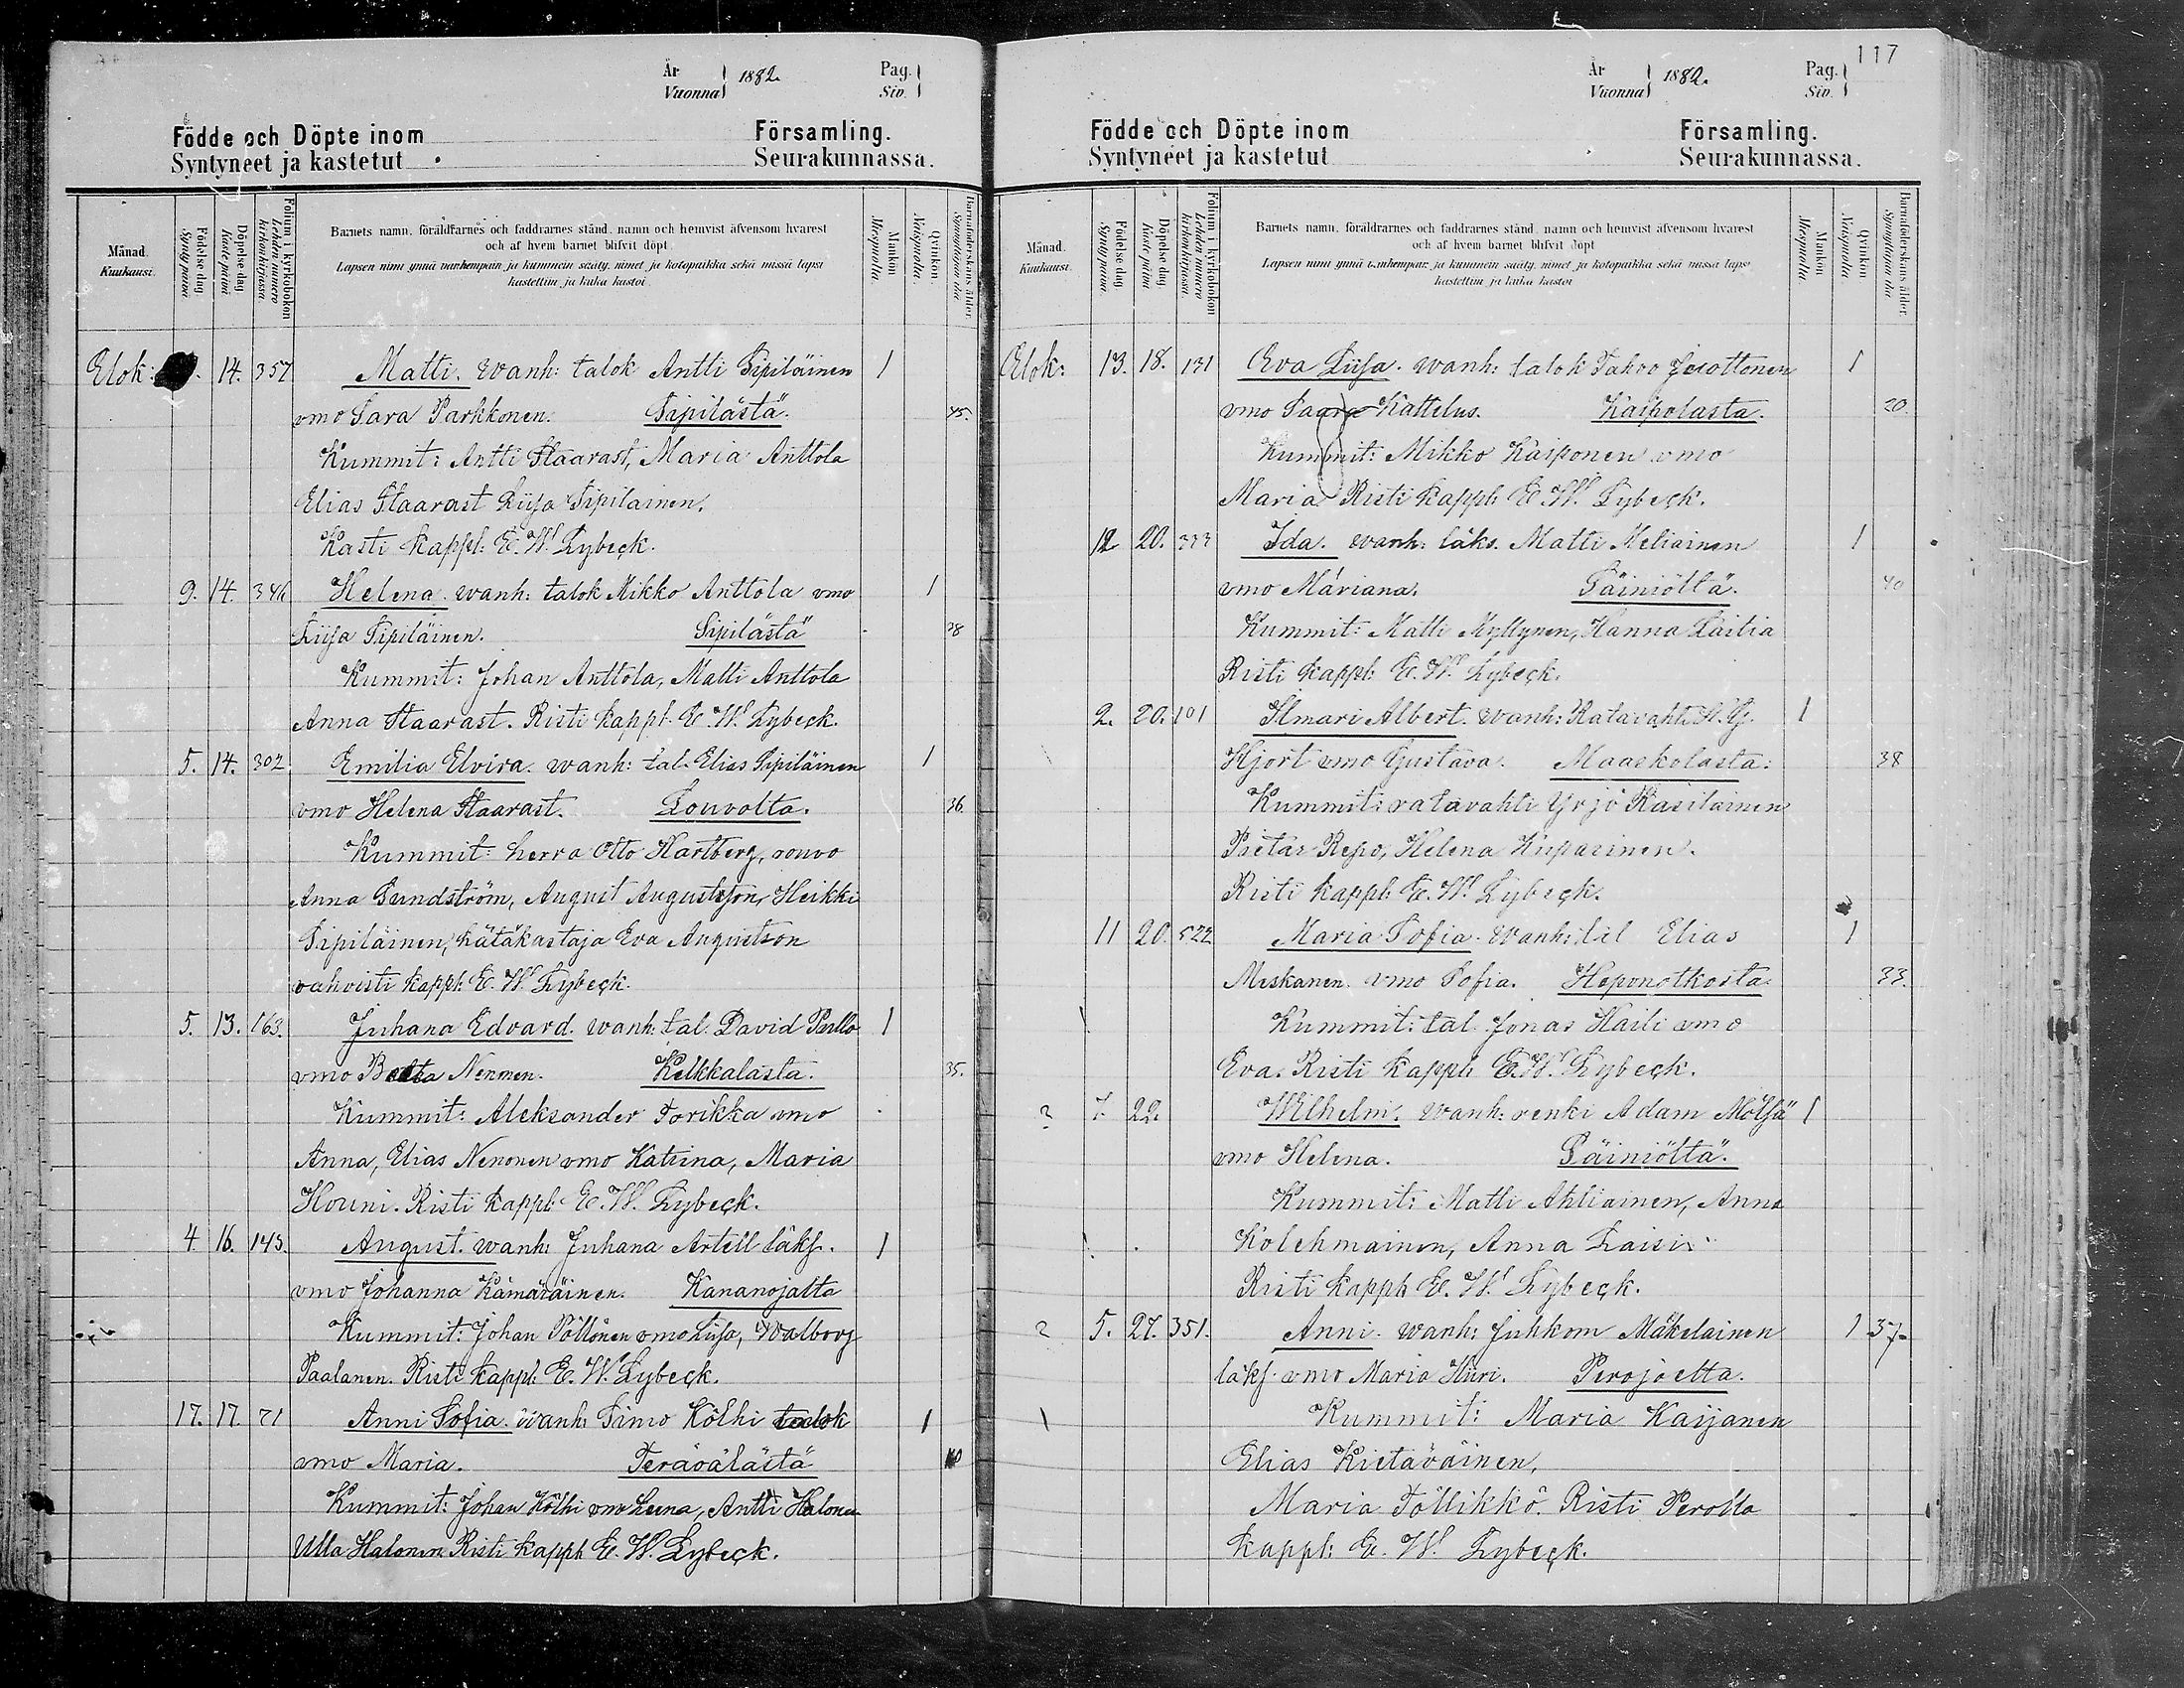 År
Vuonna
1882.
Pag.
Siv.
Födde och Döpte inom
Församling.
Syntyneet ja kastetut
Seurakunnassa.
Månad.
Kuukausi.
Födelse dag
Synty päivä
Döpelse dag
Kaste päivä
Folium i kyrkoboken
Lehden numero kirkonkirjassa
Barnets namn, föräldrarnes och faddrarnes stånd, namn och hemvist äfvensom hvarest
och af hvem barnet blifvit döpt.
Lapsen nimi ynnä vanhempain ja kummein sääty, nimet ja kotopaikka sekä missä lapsi
kastettiin ja kuka kastoi.
Mankön.
Miespuolta.
Qvinkön.
Vaimopuolta.
Barnaföderskans ålder.
Synnyttäjän ikä
Elok: 14. 357 Matti. Wanh: talok Antti Sipiläinen 1
vmo Sara Parkkonen. Sipilästä. 45.
Kummit: Antti Staarast, Maria Anttola
Elias Staarast Liisa Sipilainen.
Kasti kappl: E. W. Lybeck.
9. 14. 346 Helena. wanh: talok Mikko Anttola vmo 1
Liisa Sipiläinen. Sipilästä 28
Kummit: Johan Anttola, Matti Anttola
Anna Staarast. Risti kappl. E. W. Lybeck.
5. 14. 302. Emilia Elvira. wanh: tal. Elias Sipiläinen 1
vmo Helena Staarast. Louvolta. 36.
Kummit: herra Otto Hartberg, rouvo
Anna Sundström, August Augustsson, Heikki
Sipiläinen, hätäkastaja Eva Augustson
vahvisti kappl: E. W. Lybeck.
5. 13. 163. Juhana Edvard. wanh: tal. David Pullo 1
vmo Beata Nenmen. Kelkkalasta. 35.
Kummit: Aleksander Torikka vmo
Anna, Elias Nenonen vmo Katrina, Maria
Houni. Risti kappl: E. W. Lybeck.
4. 16. 145. August. wanh: Juhana Artell läks. 1
vmo Johanna Kämäräinen. Kananojalta
Kummit: Johan Pöllönen vmo Liisa, Walborg
Paalanen. Risti kappl: E. W. Lybeck.
17. 17. 71 Anni Sofia. Wanh: Simo Kölhi talok 1
vmo Maria. Terävälästä 40
Kummit: Johan Kölhi vmo Leena, Antti Halonen
Ulla Halonen Risti kappl: E. W. Lybeck.
117
År
Vuonna
1882.
Pag.
Siv.
Födde och Döpte inom
Församling.
Syntyneet ja kastetut
Seurakunnassa.
Månad.
Kuukausi.
Födelse dag
Synty päivä.
Döpelse dag
Kaste päivä
Folium i kyrkoboken
Lehden numero kirkonkirjassa.
Barnets namn, föräldrarnes och faddrarnes stånd, namn och hemvist äfvensom hvarest
och af hvem barnet blifvit döpt
Lapsen nimi ynnä vanhempain ja kummein sääty, nimet ja kotopaikka sekä missä lapsi
kastettiin ja kuka kastoi
Mankön.
Miespuolta.
Qvinkön.
Vaimopuolta.
Barnaföderskans ålder.
Synnyttäjän ikä
Elok: 13. 18. 131 Eva Liisa. wanh: talok Tahvo 1
vmo Saara Kattelus. Kaipolasta. 20.
Kummit: Mikko Kaiponen vmo
Maria Risti kappl: E. W. Lybeck.
12 20. 373 Ida. wanh: läks. Matti Meliainen 1
vmo Mariana. Säiniöltä. 40
Kummit: Matti Myllynen, Hanna Laitia
Risti kappl: E. W. Lybeck.
2. 20. 101 Ilmari Albert. wanh: Ratavahti H. G. 1
Hjort vmo Gustava. Maaskolasta. 38
Kummit: ratavahti Yrjö Kasilainen
Pietar Repo, Helena Kuparinen.
Risti kappl: E. W. Lybeck.
11 20. 522 Maria Sofia. Wanh: til Elias 1
Miskanen vmo Sofia. Heponotkosta. 33.
Kummit: tal. Jonas Haili vmo
Eva. Risti kappl: E. W. Lybeck.
? 7. 22. Wilhelmi. wanh: renki Adam Mölsä 1
vmo Helena. Säiniöltä.
Kummit: Matti Ahliainen, Anna
Kolehmainen, Anna
Risti kappl: E. W. Lybeck.
? 5. 27. 351. Anni. wanh: Juhkom Mäkelainen 1 37.
läks. vmo Maria Hiiri. Perojoelta.
Kummit: Maria Kaijanen
Elias Kietäväinen,
Maria Töllikkö. Risti Perolla
kappl: E. W. Lybeck.